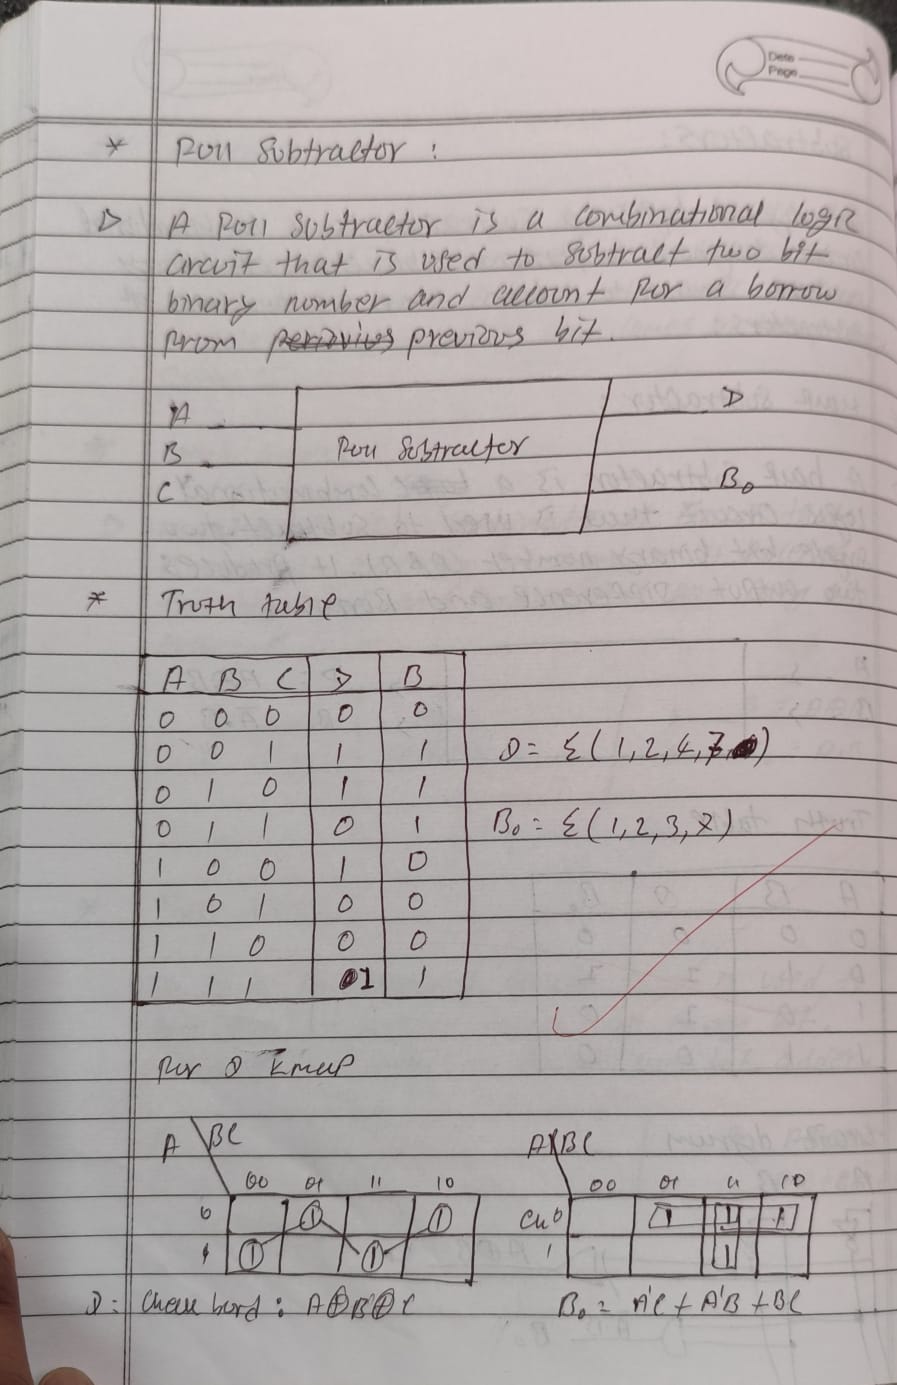 Date
Page
* Full Subtractor :
▷ A Full Subtractor is a combinational logic
circuit that is used to subtract two bit
binary number and account for a borrow
from previous bit.
A D
B Full Subtractor
C B₀
* Truth table
A B C D B
0 0 0 0 0
0 0 1 1 1 D = Σ(1,2,4,7)
0 1 0 1 1
0 1 1 0 1 B₀ = Σ(1,2,3,7)
1 0 0 1 0
1 0 1 0 0
1 1 0 0 0
1 1 1 1 1
For D Kmap
A \ BC A \ BC
00 01 11 10 00 01 11 10
0 1 1 0 1 1 1
1 1 1 1 1
D = Check bord : A⊕B⊕C B₀ = A'C + A'B + BC